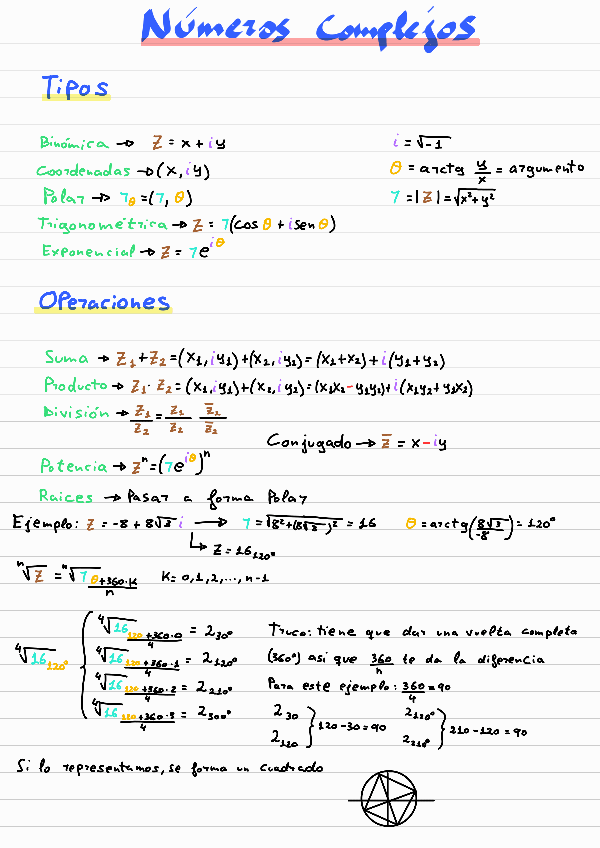 Números Complejos
Tipos
Binómica → Z = x + iy
i = √-1
Coordenadas → (x, iy)
θ = arctg y/x = argumento
Polar → r_θ = (r, θ)
r = |Z| = √x²+y²
Trigonométrica → Z = r(cos θ + i sen θ)
Exponencial → Z = re^iθ
Operaciones
Suma → Z₁+Z₂=(x₁,iy₁)+(x₂,iy₂)=(x₁+x₂)+i(y₁+y₂)
Producto → Z₁·Z₂=(x₁,iy₁)+(x₂,iy₂)=(x₁x₂-y₁y₂)+i(x₁y₂+y₁x₂)
División → Z₁/Z₂ = Z₁/Z₂ Z̅₂/Z̅₂
Conjugado → Z̅ = x-iy
Potencia → Zⁿ=(re^iθ)ⁿ
Raices → Pasar a forma Polar
Ejemplo: Z = -8 + 8√3 i → r = √8²+(8√3)² = 16 θ = arctg(8√3/-8) = 120°
↳ Z = 16_120°
ⁿ√Z = ⁿ√r_(θ+360·K)/n K = 0,1,2,...,n-1
⁴√16_120°
⁴√16_(120+360·0)/4 = 2_30°
⁴√16_(120+360·1)/4 = 2_120°
⁴√16_(120+360·2)/4 = 2_210°
⁴√16_(120+360·3)/4 = 2_300°
Truco: tiene que dar una vuelta completa
(360°) asi que 360/n te da la diferencia
Para este ejemplo: 360/4 = 90
2_30 2_120 } 120-30=90
2_120° 2_210° } 210-120=90
Si lo representamos, se forma un cuadrado